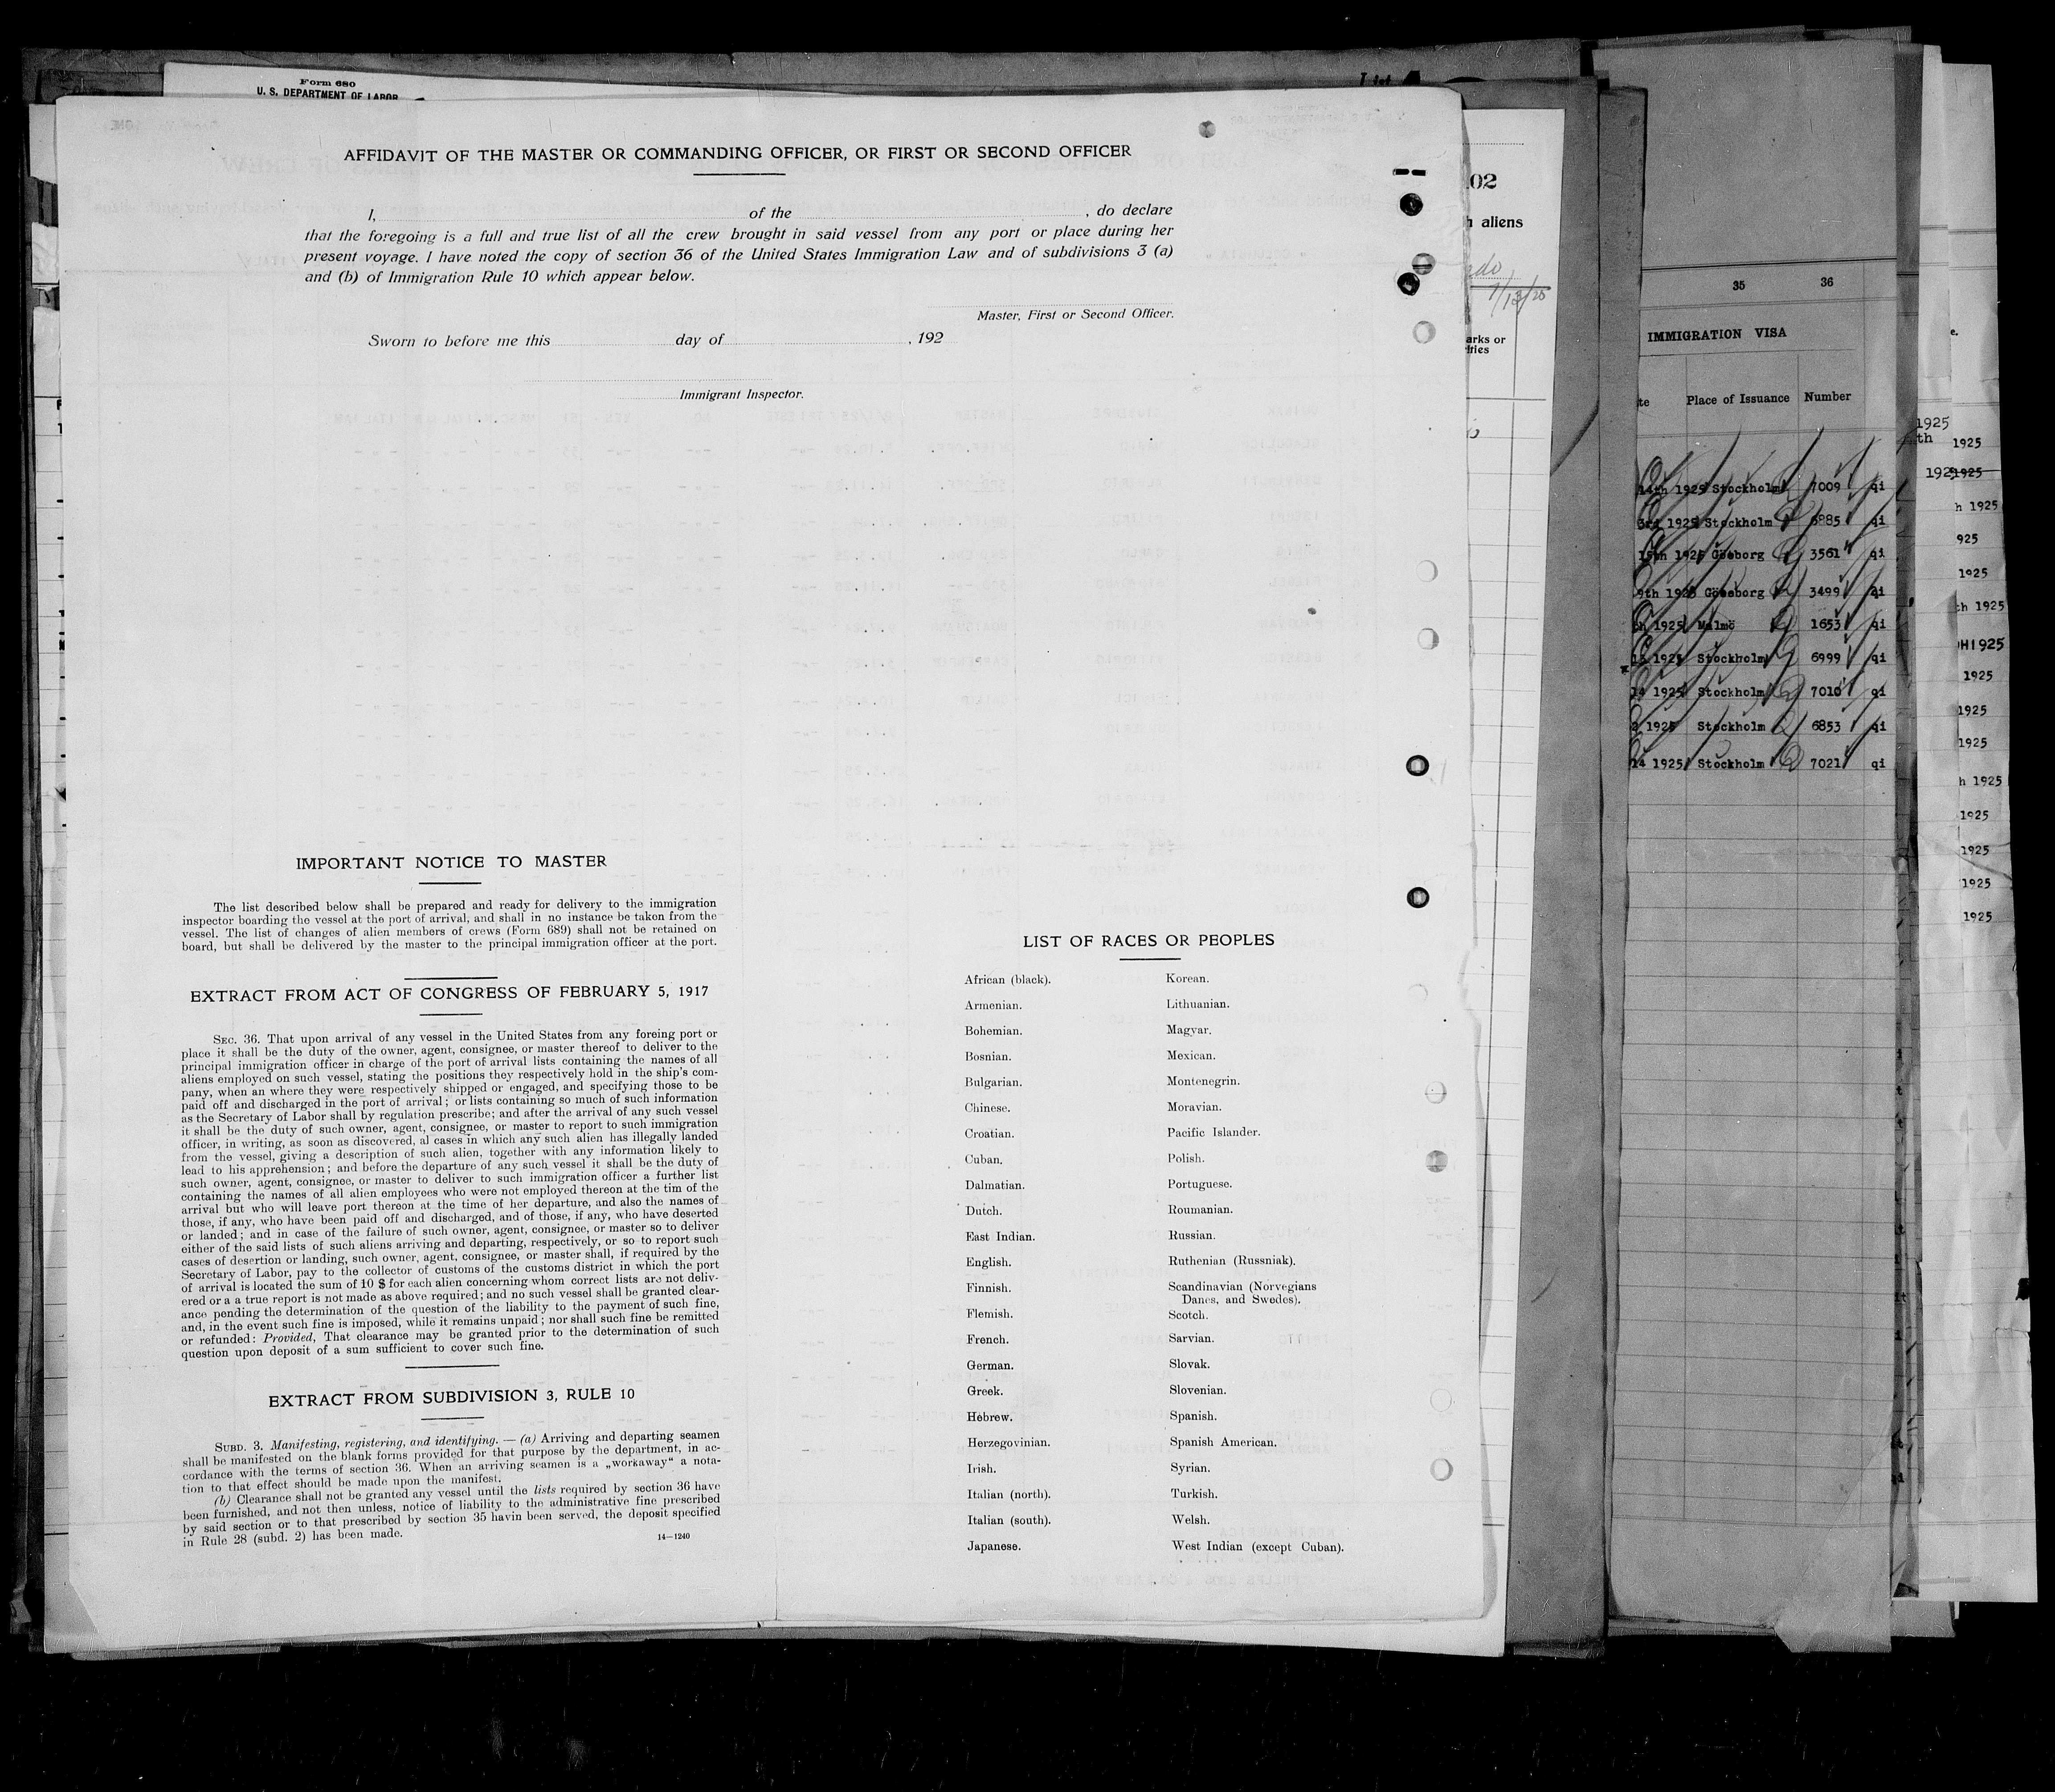 Form 680
U. S. DEPARTMENT OF LABOR
AFFIDAVIT OF THE MASTER OR COMMANDING OFFICER, OR FIRST OR SECOND OFFICER
I, of the , do declare
that the foregoing is a full and true list of all the crew brought in said vessel from any port or place during her
present voyage. I have noted the copy of section 36 of the United States Immigration Law and of subdivisions 3 (a)
and (b) of Immigration Rule 10 which appear below.
Master, First or Second Officer.
Sworn to before me this day of , 192
Immigrant Inspector.
IMPORTANT NOTICE TO MASTER
The list described below shall be prepared and ready for delivery to the immigration
inspector boarding the vessel at the port of arrival, and shall in no instance be taken from the
vessel. The list of changes of alien members of crews (Form 689) shall not be retained on
board, but shall be delivered by the master to the principal immigration officer at the port.
EXTRACT FROM ACT OF CONGRESS OF FEBRUARY 5, 1917
SEC. 36. That upon arrival of any vessel in the United States from any foreing port or
place it shall be the duty of the owner, agent, consignee, or master thereof to deliver to the
principal immigration officer in charge of the port of arrival lists containing the names of all
aliens employed on such vessel, stating the positions they respectively hold in the ship's com-
pany, when an where they were respectively shipped or engaged, and specifying those to be
paid off and discharged in the port of arrival; or lists containing so much of such information
as the Secretary of Labor shall by regulation prescribe; and after the arrival of any such vessel
it shall be the duty of such owner, agent, consignee, or master to report to such immigration
officer, in writing, as soon as discovered, al cases in which any such alien has illegally landed
from the vessel, giving a description of such alien, together with any information likely to
lead to his apprehension; and before the departure of any such vessel it shall be the duty of
such owner, agent, consignee, or master to deliver to such immigration officer a further list
containing the names of all alien employees who were not employed thereon at the tim of the
arrival but who will leave port thereon at the time of her departure, and also the names of
those, if any, who have been paid off and discharged, and of those, if any, who have deserted
or landed; and in case of the failure of such owner, agent, consignee, or master so to deliver
either of the said lists of such aliens arriving and departing, respectively, or so to report such
cases of desertion or landing, such owner, agent, consignee, or master shall, if required by the
Secretary of Labor, pay to the collector of customs of the customs district in which the port
of arrival is located the sum of 10 $ for each alien concerning whom correct lists are not deliv-
ered or a a true report is not made as above required; and no such vessel shall be granted clear-
ance pending the determination of the question of the liability to the payment of such fine,
and, in the event such fine is imposed, while it remains unpaid; nor shall such fine be remitted
or refunded: Provided, That clearance may be granted prior to the determination of such
question upon deposit of a sum sufficient to cover such fine.
EXTRACT FROM SUBDIVISION 3, RULE 10
SUBD. 3. Manifesting, registering, and identifying. — (a) Arriving and departing seamen
shall be manifested on the blank forms provided for that purpose by the department, in ac-
cordance with the terms of section 36. When an arriving seamen is a „workaway“ a nota-
tion to that effect should be made upon the manifest.
(b) Clearance shall not be granted any vessel until the lists required by section 36 have
been furnished, and not then unless, notice of liability to the administrative fine prescribed
by said section or to that prescribed by section 35 havin been served, the deposit specified
in Rule 28 (subd. 2) has been made.
14—1240
LIST OF RACES OR PEOPLES
African (black).
Armenian.
Bohemian.
Bosnian.
Bulgarian.
Chinese.
Croatian.
Cuban.
Dalmatian.
Dutch.
East Indian.
English.
Finnish.
Flemish.
French.
German.
Greek.
Hebrew.
Herzegovinian.
Irish.
Italian (north).
Italian (south).
Japanese.
Korean.
Lithuanian.
Magyar.
Mexican.
Montenegrin.
Moravian.
Pacific Islander.
Polish.
Portuguese.
Roumanian.
Russian.
Ruthenian (Russniak).
Scandinavian (Norvegians
Danes, and Swedes).
Scotch.
Sarvian.
Slovak.
Slovenian.
Spanish.
Spanish American.
Syrian.
Turkish.
Welsh.
West Indian (except Cuban).
02
aliens
arks or
35 36
IMMIGRATION VISA
te Place of Issuance Number
14th 1925 Stockholm 7009 qi
3rd 1925 Stockholm 6885 qi
15th 1925 Göteborg 3561 qi
9th 1925 Göteborg 3499 qi
th 1925 Malmö 1653 qi
15 1925 Stockholm 6999 qi
14 1925 Stockholm 7010 qi
2 1925 Stockholm 6853 qi
14 1925 Stockholm 7021 qi
1925
th 1925
1925
h 1925
925
1925
th 1925
H1925
1925
1925
1925
h 1925
1925
1925
1925
1925